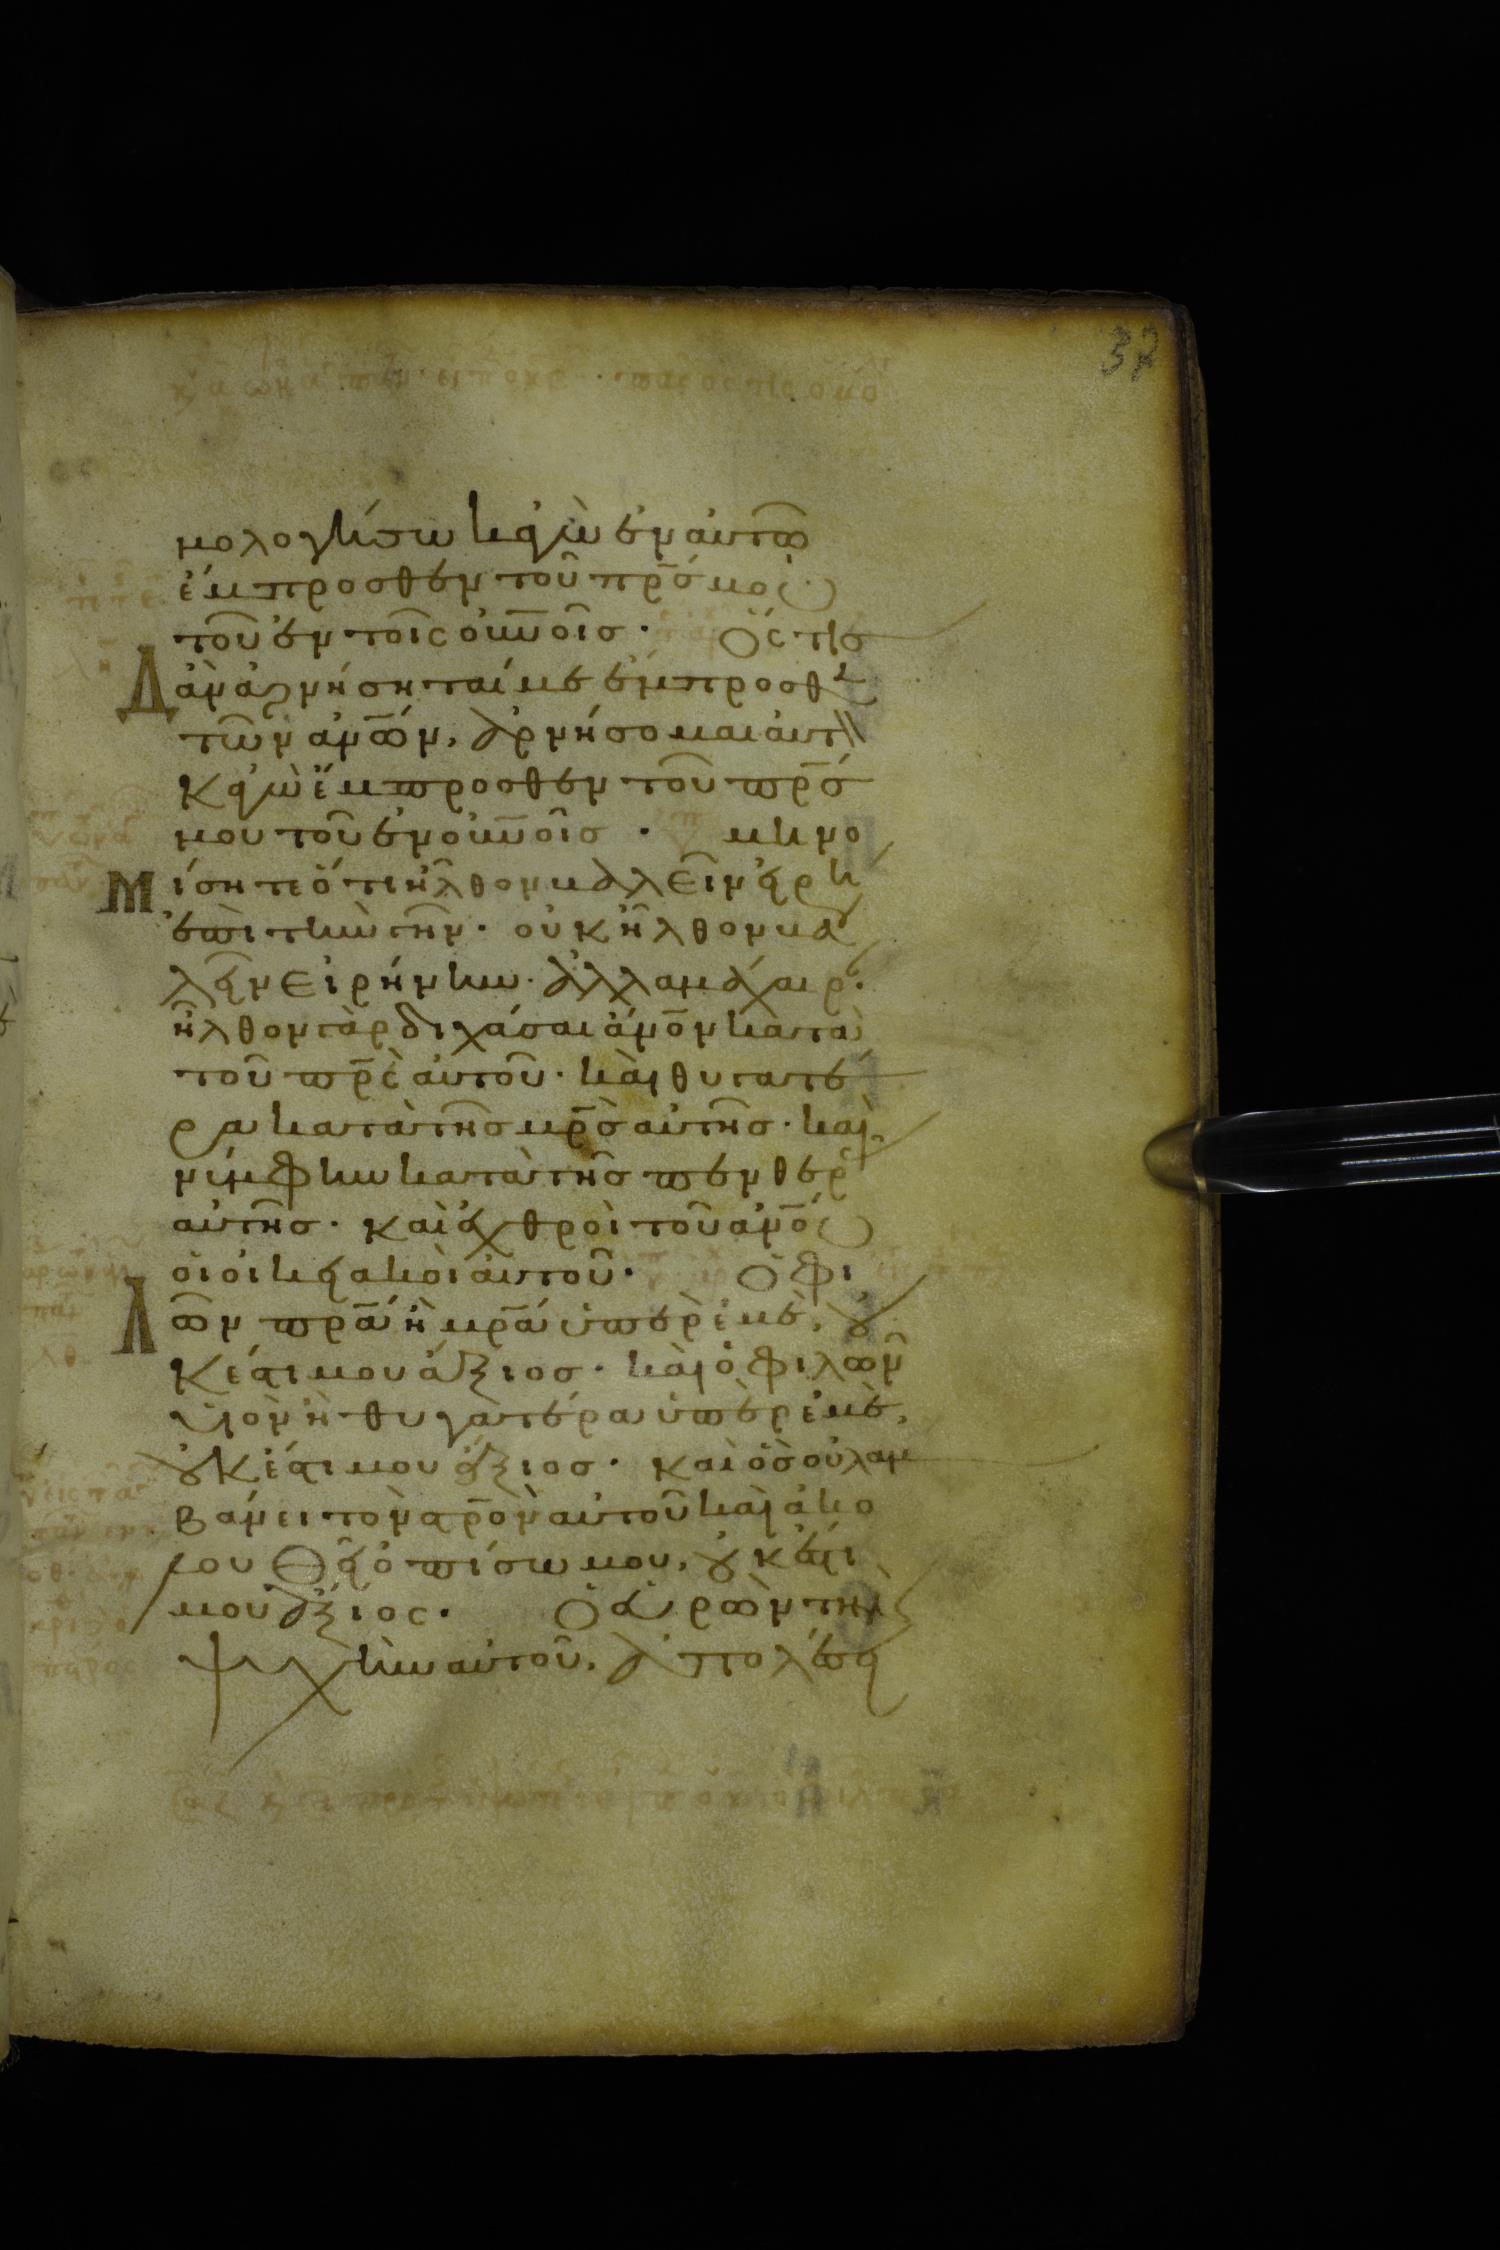 37
μολογήσω κἀγὼ ἐν αὐτῶ
ἔμπροσθεν τοῦ πρ̅ς μου
τοῦ ἐν τοῖς οὐνοῖς · Ὅς τις
Δ ἀν ἀρνήσηται με ἔμπροσθ
τῶν ἀν̅ων, ἀρνήσομαι αὐτ
κἀγὼ ἔμπροσθεν τοῦ πρ̅ς
μου τοῦ ἐν οὐνοῖς · μὴ νο
Μ ίσητε ὅτι ἦλθον βαλεῖν εἰρή
ἐπὶ τὴν γῆν · οὐκ ἦλθον βα
λεῖν εἰρήνην · ἀλλα μάχαιρ ·
ἦλθον γὰρ διχάσαι ἀν̅ον κατὰ
τοῦ πρ̅ς αὐτοῦ · καὶ θυγατέ
ρα κατὰ τῆς μρ̅ς αὐτῆς · καὶ
νύμφην κατὰ τῆς πενθερ
αὐτῆς · καὶ ἐχθροὶ τοῦ ἀν̅ου
οἱ οἰκειακοὶ αὐτοῦ · Ὁ φι
Λ ῶν πρ̅α ἢ μρ̅α ὑπὲρ ἐμὲ, οὐ
κ ἔστι μου ἄξιος · καὶ ὁ φιλῶν
υἱὸν ἢ θυγατέρα ὑπὲρ ἐμὲ,
οὐκ ἔστι μου ἄξιος · καὶ ὃς οὐ λαμ
βάνει τὸν σρ̅ον αὐτοῦ καὶ ἀκο
λουθεῖ ὀπίσω μου, οὐκ ἔστι
μου ἄξιος · Ὁ εὑρὼν τὴν
ψυχὴν αὐτοῦ, ἀπολέσει